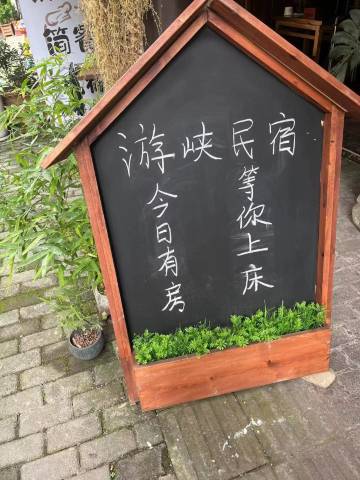 游峡民宿
等你上床
今日有房
简餐